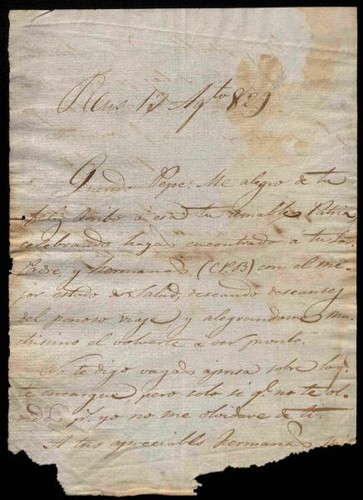 Reus 17 Agto 829
Querido Pepe: Me alegro de tu
feliz á esa tu amable Patria
celebrando hayas encontrado a tu Sor
Pare, y Hermanas (CPB) con el me-
jor estado de salud, deseando descanses
del penoso viaje y alegrandome mu-
chisimo el volverte a ver pronto.
No te digo vagas apriesa sobre lo q.
te encargue, pero solo si q. no te ol-
q. yo no me olvidare de ti.
A tus apreciables Hermanas